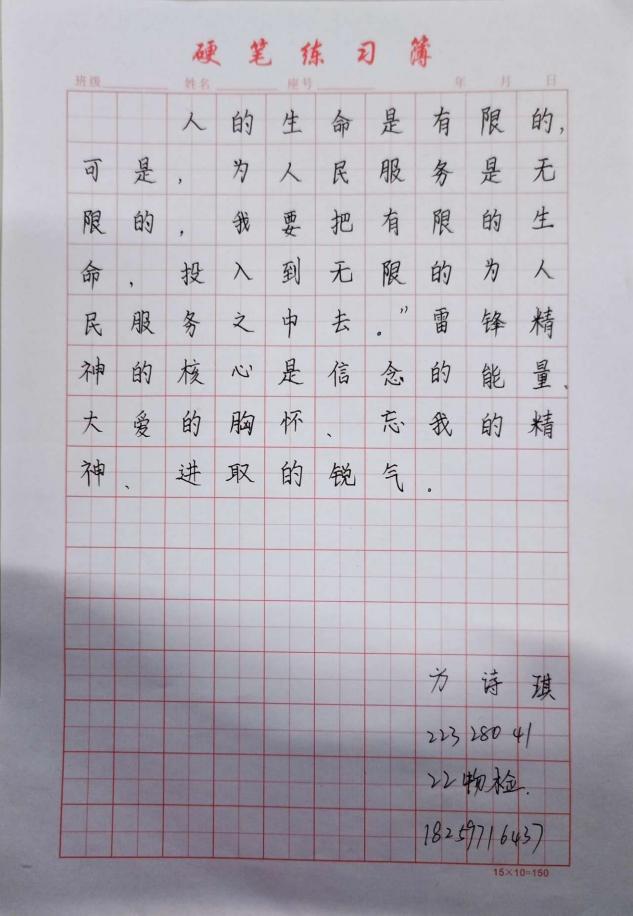 硬笔练习簿
班级 姓名 座号 年 月 日
人的生命是有限的,
可是,为人民服务是无
限的,我要把有限的生
命,投入到无限的为人
民服务之中去。”雷锋精
神的核心是信念的能量、
大爱的胸怀、忘我的精
神、进取的锐气。
诗琪
22328041
22物检.
18259716437
15×10=150